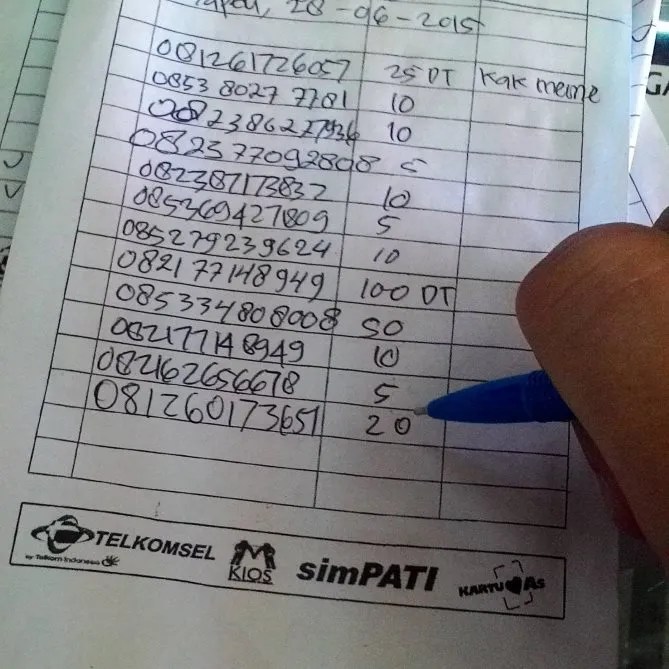 28-06-2015
081261726057 25 DT Kak meme
0853 8027 7781 10
082386227936 10
082377092808 5
082387173832 10
085369427809 5
085279239624 10
082177148949 100 DT
085334808008 50
082177148949 10
082162656678 5
081260173651 20
TELKOMSEL
by Telkom Indonesia
M KIOS
simPATI
KARTU AS